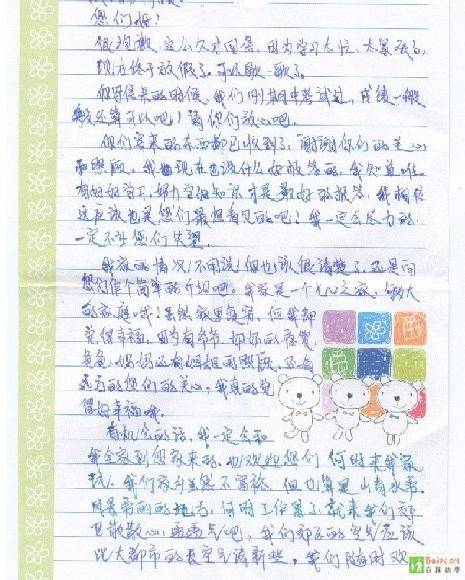 您们好!
很抱歉,这么久才回信,因为学习太忙、太紧张了,
现在终于放假了,可以歇一歇了。
你们寄信来的时候,我们刚期中考试过,成绩一般
般还算可以吧!请你们放心吧。
你们寄来的东西都已收到了,谢谢你们的关心
和照顾,我也现在也没什么好报答的,我知道唯
有好好学习,努力学知识才是最好的报答,我相信
这应该也是您们最想看见的吧!我一定会尽力的
一定不让您们失望。
我家的情况不用说!但也认很清楚了,还是向
您们作个简单的介绍吧。我家是一个九口之家,够大
的家庭哦!虽然家里贫穷,但我却
觉得幸福,因为有爷爷、奶奶的疼爱
爸爸、妈妈还有姐姐的照顾,还有
远方的您们的关心,我真的觉
得好幸福哦。
有机会的话,我一定会和
我全家到您家来的。也欢迎您们 何时来我家
玩,我们家乡虽然不富裕 但也算是山青水秀、
风景 的地方,何时工作累了,就来我们
里散散心,透透气吧,我们郊区的空气应该
比大都市的 空气清新些,我们随时欢
百年助学